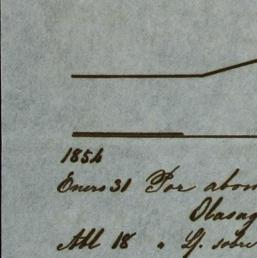 1854
Enero 31 Por abon
Olasag
Abl 18 " L/. sobre